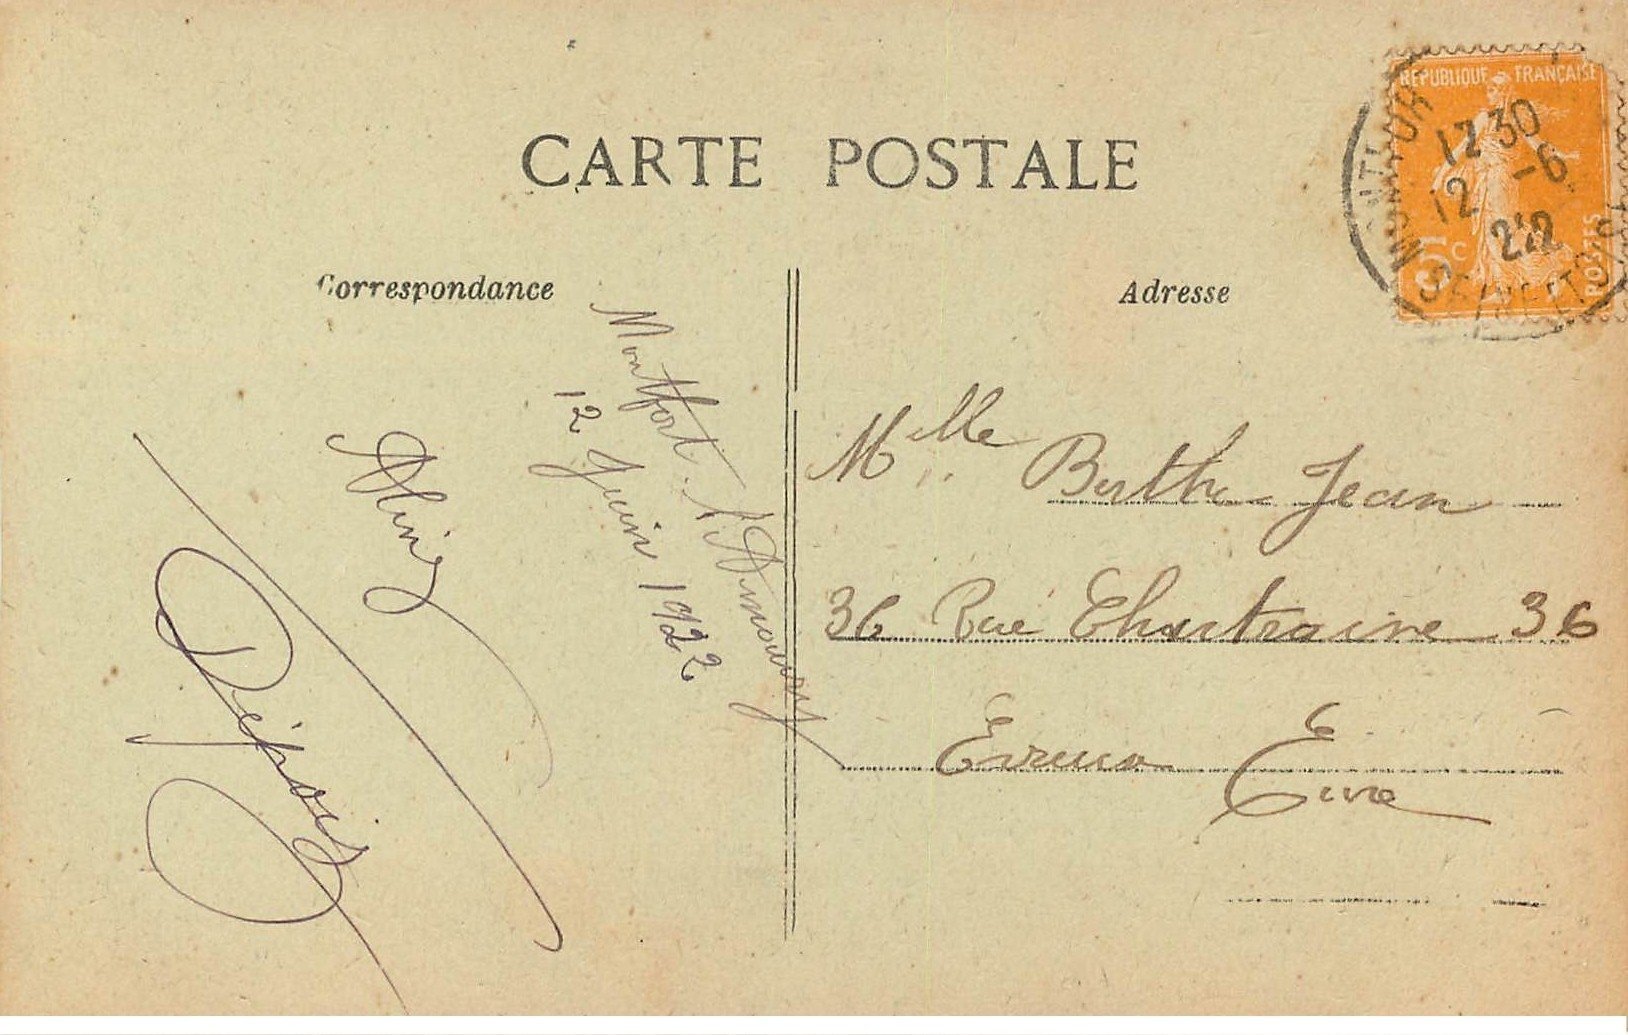 CARTE POSTALE
RÉPUBLIQUE FRANÇAISE
5c
POSTES
MONTFORT
SEINE ET
12 30
12 -6
22
Correspondance
Adresse
Montfort. l'Amaury
12 Juin 1922
Mlle Berthe Jean
36 Rue Chartraine 36
Evreux Eure